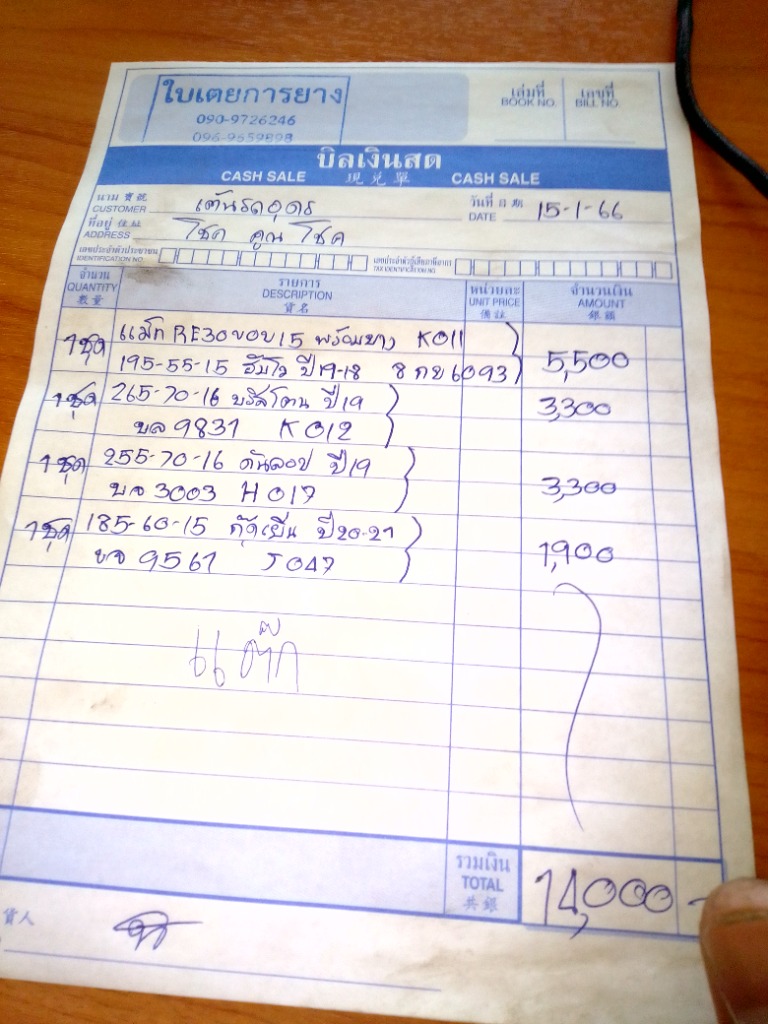 ใบเตยการยาง
090-9726246
096-9559898
เล่มที่ BOOK NO.
เลขที่ BILL NO.
บิลเงินสด
CASH SALE 現兑單 CASH SALE
นาม 寶號 CUSTOMER เต้นรถอุดร
วันที่ 日期 DATE 15-1-66
ที่อยู่ 住址 ADDRESS โชค คูณ โชค
เลขประจำตัวประชาชน IDENTIFICATION NO.
เลขประจำตัวผู้เสียภาษีอากร TAX IDENTIFICATION NO.
จำนวน QUANTITY 數量
รายการ DESCRIPTION 貨名
หน่วยละ UNIT PRICE 備註
จำนวนเงิน AMOUNT 銀額
1ชุด แม็ก RE30ขอบ15 พร้อมยาง K011
195-55-15 ปี19-18 8 กข 6093 5,500
1ชุด 265-70-16 บริสโตน ปี19 3,300
บล 9831 K012
1ชุด 255-70-16 ดันลอป ปี19
บจ 3003 H017 3,300
1ชุด 185-60-15 กู๊ดเยียน ปี20-21
บจ 9561 J047 1,900
รวมเงิน TOTAL 共銀 14,000-
貨人